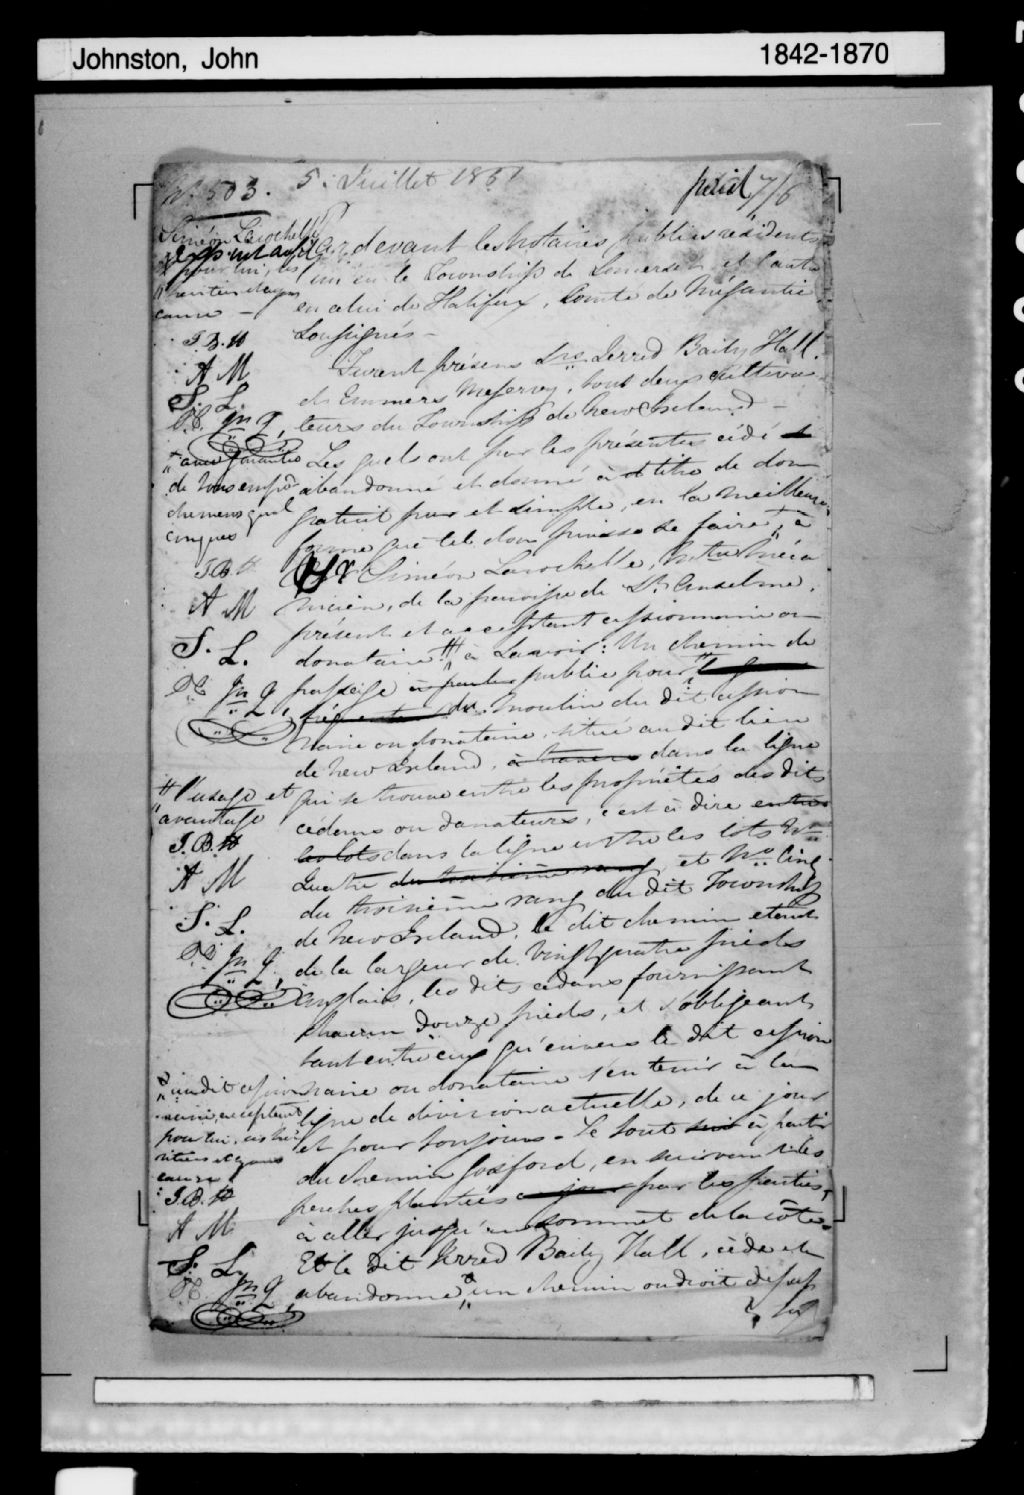 Johnston, John
1842-1870
No. 503.
5. Juillet 1851
paid 7/6
Siméon Larochelle
pour lui, ses
héritiers et ayans
cause -
J B. H
A M
S. L.
Par devant les Notaires publics résidents
l'un en le Township de Somerset et l'autre
en celui de Halifax, Comté de Mégantic
Soussignés -
Furent présens Srs Jerred Baily Hall.
et Emmers Meservey, tous deux cultiva-
teurs du Township de New Ireland -
Les quels ont par les présentes cédé et
abandonné et donné à titre de don
gratuit pur et simple, en la meilleure
forme que tel don puisse se faire, à
Sr Siméon Larochelle,
nicien, de la paroisse de St. Anselme,
présent et acceptant cessionnaire ou
donataire # à savoir: Un chemin de
passage publie pour
du moulin du dit cession
naire ou donataire, situé au dit lieu
de New Ireland, à travers dans la ligne
qui se trouve entre les propriétés des dits
cédans ou donateurs, c'est à dire entre
les lots dans la ligne entre les lots No
Quatre du troisième rang et No Cinq
du troisième rang du dit Township
de New Ireland, le dit chemin étant
de la largeur de Vingtquatre pieds
anglais, les dits cédans fournissant
chacun douze pieds, et s'obligeant
tant entr'eux qu'envers le dit cession
naire ou donataire s'en tenir à la
ligne de division actuelle, de ce jour
et pour toujours - Le tout à partir
du chemin Gosford, en suivant les
perches plantées ce jour par les parties,
à aller jusqu'au sommet de la côte.
Et le dit Jerred Baily Hall, cède et
abandonne un chemin ou droit de pas
+ avec garantie
de tous empê
chemens quel
conques
J B H
A M
S. L.
# l'usage et
avantage
J. B. H
A M
S. L.
au dit cession
naire, acceptant
pour lui, ses hé
ritiers et ayans
cause
J. B. H
A M
S. L.